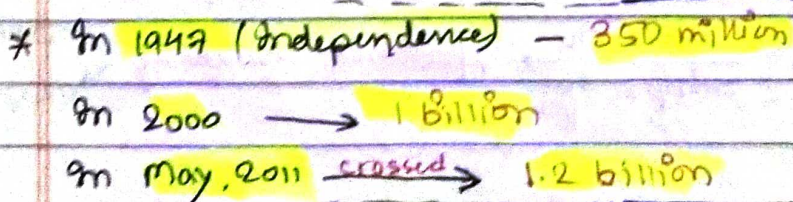 * In 1947 (Independence) - 350 million
In 2000 → 1 billion
In May, 2011 crossed → 1.2 billion